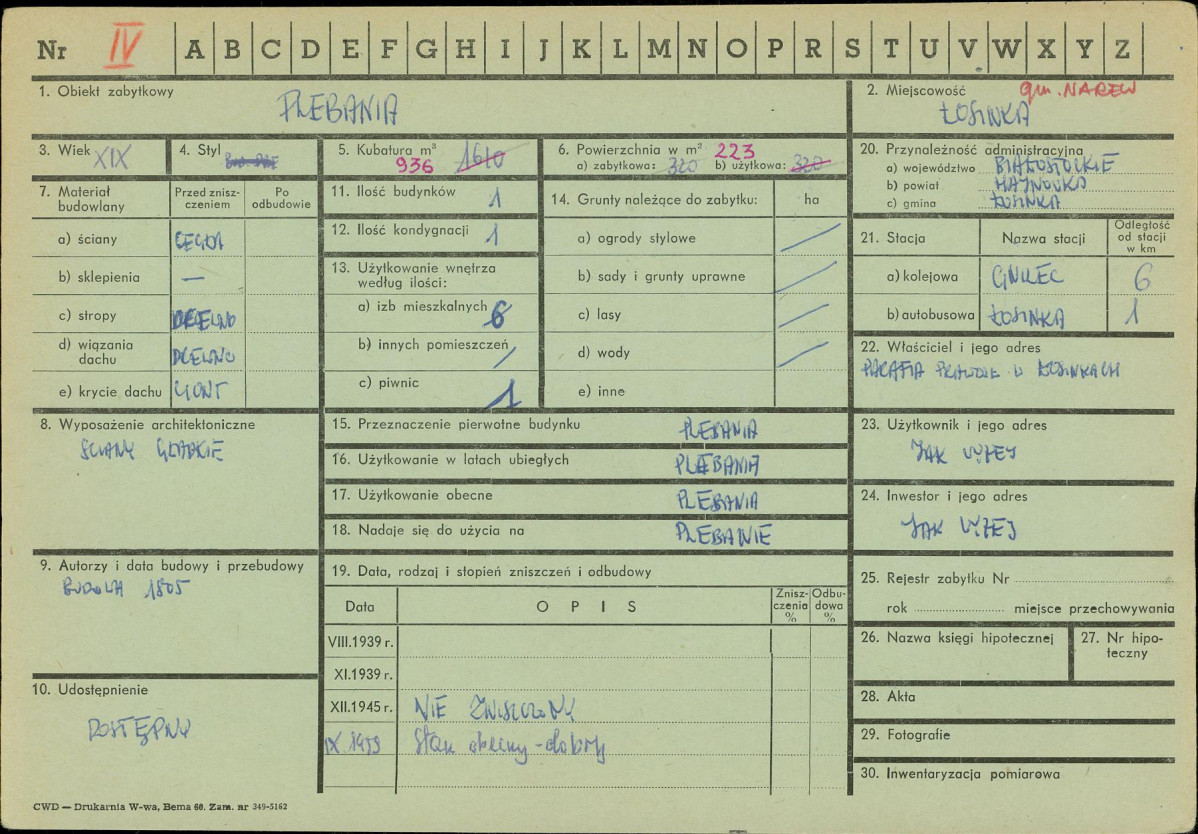 Nr IV A B C D E F G H I J K L M N O P R S T U V W X Y Z
1. Obiekt zabytkowy
PLEBANIA
2. Miejscowość gm. NAREW
ŁOSINKA
3. Wiek XIX
4. Styl
5. Kubatura m³
936 1610
6. Powierzchnia w m² 223
a) zabytkowa: 320 b) użytkowa: 320
20. Przynależność administracyjna
a) województwo BIAŁOSTOCKIE
b) powiat HAJNÓWKA
c) gmina ŁOSINKA
7. Materiał budowlany
Przed zniszczeniem
Po odbudowie
a) ściany CEGŁA
b) sklepienia —
c) stropy DREWNO
d) wiązania dachu DREWNO
e) krycie dachu GONT
11. Ilość budynków 1
12. Ilość kondygnacji 1
13. Użytkowanie wnętrza
według ilości:
a) izb mieszkalnych 6
b) innych pomieszczeń /
c) piwnic 1
14. Grunty należące do zabytku: ha
a) ogrody stylowe /
b) sady i grunty uprawne /
c) lasy /
d) wody /
e) inne
21. Stacja Nazwa stacji Odległość od stacji w km
a) kolejowa GNILEC 6
b) autobusowa ŁOSINKA 1
22. Właściciel i jego adres
PARAFIA PRAWOSŁ W ŁOSINKACH
8. Wyposażenie architektoniczne
ŚCIANY GŁADKIE
15. Przeznaczenie pierwotne budynku PLEBANIA
16. Użytkowanie w latach ubiegłych PLEBANIA
17. Użytkowanie obecne PLEBANIA
18. Nadaje się do użycia na PLEBANIE
23. Użytkownik i jego adres
JAK WYŻEJ
24. Inwestor i jego adres
JAK WYŻEJ
9. Autorzy i data budowy i przebudowy
BUDOWA 1805
19. Data, rodzaj i stopień zniszczeń i odbudowy
Data OPIS Zniszczenia % Odbudowa %
VIII.1939 r.
XI.1939 r.
XII.1945 r. NIE ZNISZCZONY
IX 1959 Stan obecny - dobry
25. Rejestr zabytku Nr
rok miejsce przechowywania
26. Nazwa księgi hipotecznej
27. Nr hipoteczny
28. Akta
29. Fotografie
30. Inwentaryzacja pomiarowa
10. Udostępnienie
DOSTĘPNY
CWD — Drukarnia W-wa, Bema 60. Zam. nr 349-5162